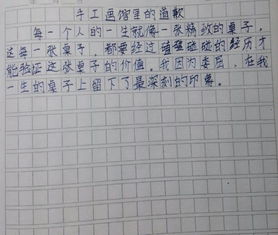 手工画馆里的道歉
每一个人的一生就像一张精致的桌子，
这每一张桌子，都要经过磕磕碰碰的经历才
能验证这张桌子的价值。我因为委屈，在我
一生的桌子上留下了最深刻的印象。